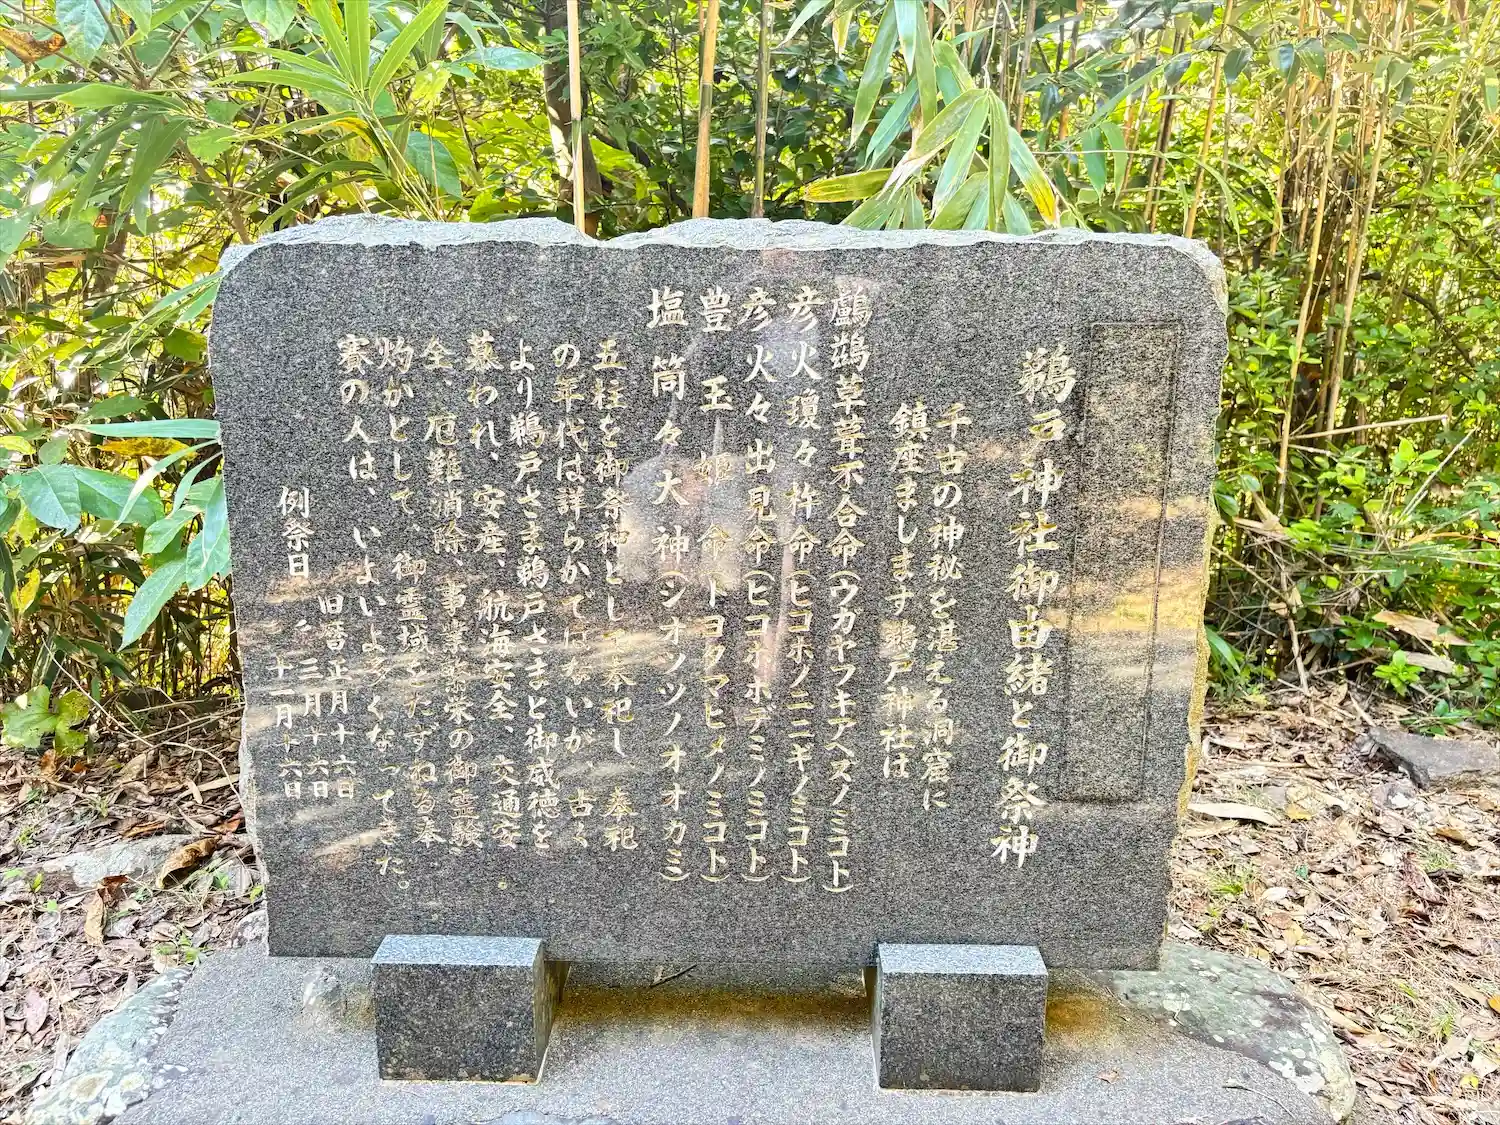 鵜戸神社御由緒と御祭神
千古の神秘を湛える洞窟に
鎮座まします鵜戸神社は
鸕鷀草葺不合命(ウガヤフキアヘズノミコト)
彦火瓊々杵命(ヒコホノニニギノミコト)
彦火々出見命(ヒコホホデミノミコト)
豊玉姫命(トヨタマヒメノミコト)
塩筒々大神(シオツツノオオカミ)
五柱を御祭神として奉祀し、奉祀
の年代は詳らかではないが、古く
より鵜戸さま鵜戸さまと御威徳を
慕われ、安産、航海安全、交通安
全、厄難消除、事業繁栄の御霊験
灼かとして、御霊域をたずねる奉
賽の人は、いよいよ多くなってきた。
例祭日 旧暦正月十六日
三月十六日
十一月十六日